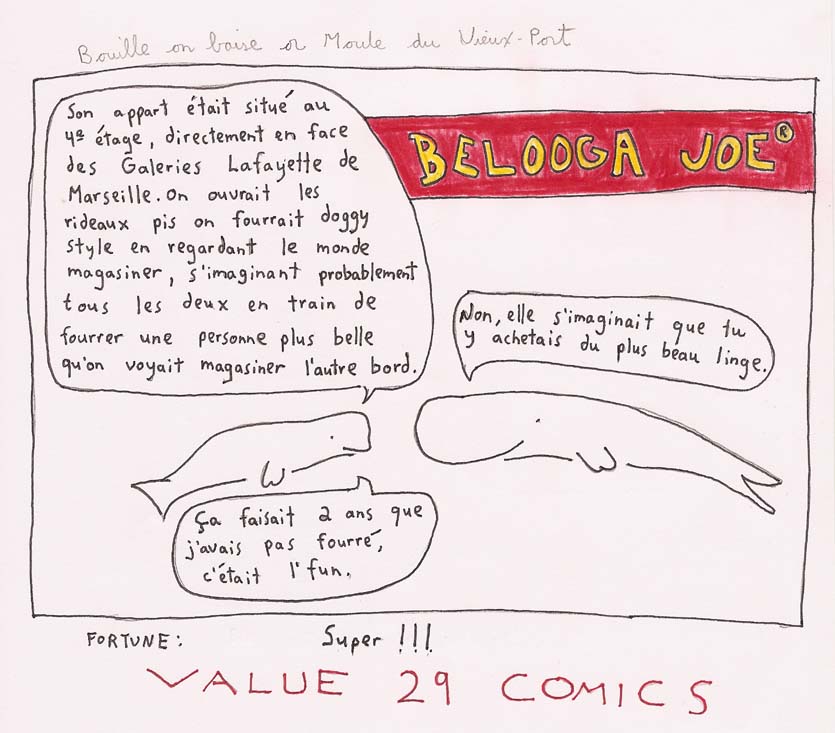 Bouille on baise or Moule du Vieux-Port
BELOOGA JOE®
Son appart était situé au
4e étage, directement en face
des Galeries Lafayette de
Marseille. On ouvrait les
rideaux pis on fourrait doggy
style en regardant le monde
magasiner, s'imaginant probablement
tous les deux en train de
fourrer une personne plus belle
qu'on voyait magasiner l'autre bord.
Non, elle s'imaginait que tu
y achetais du plus beau linge.
Ça faisait 2 ans que
j'avais pas fourré,
c'était l'fun.
FORTUNE: Super !!!
VALUE 29 COMICS